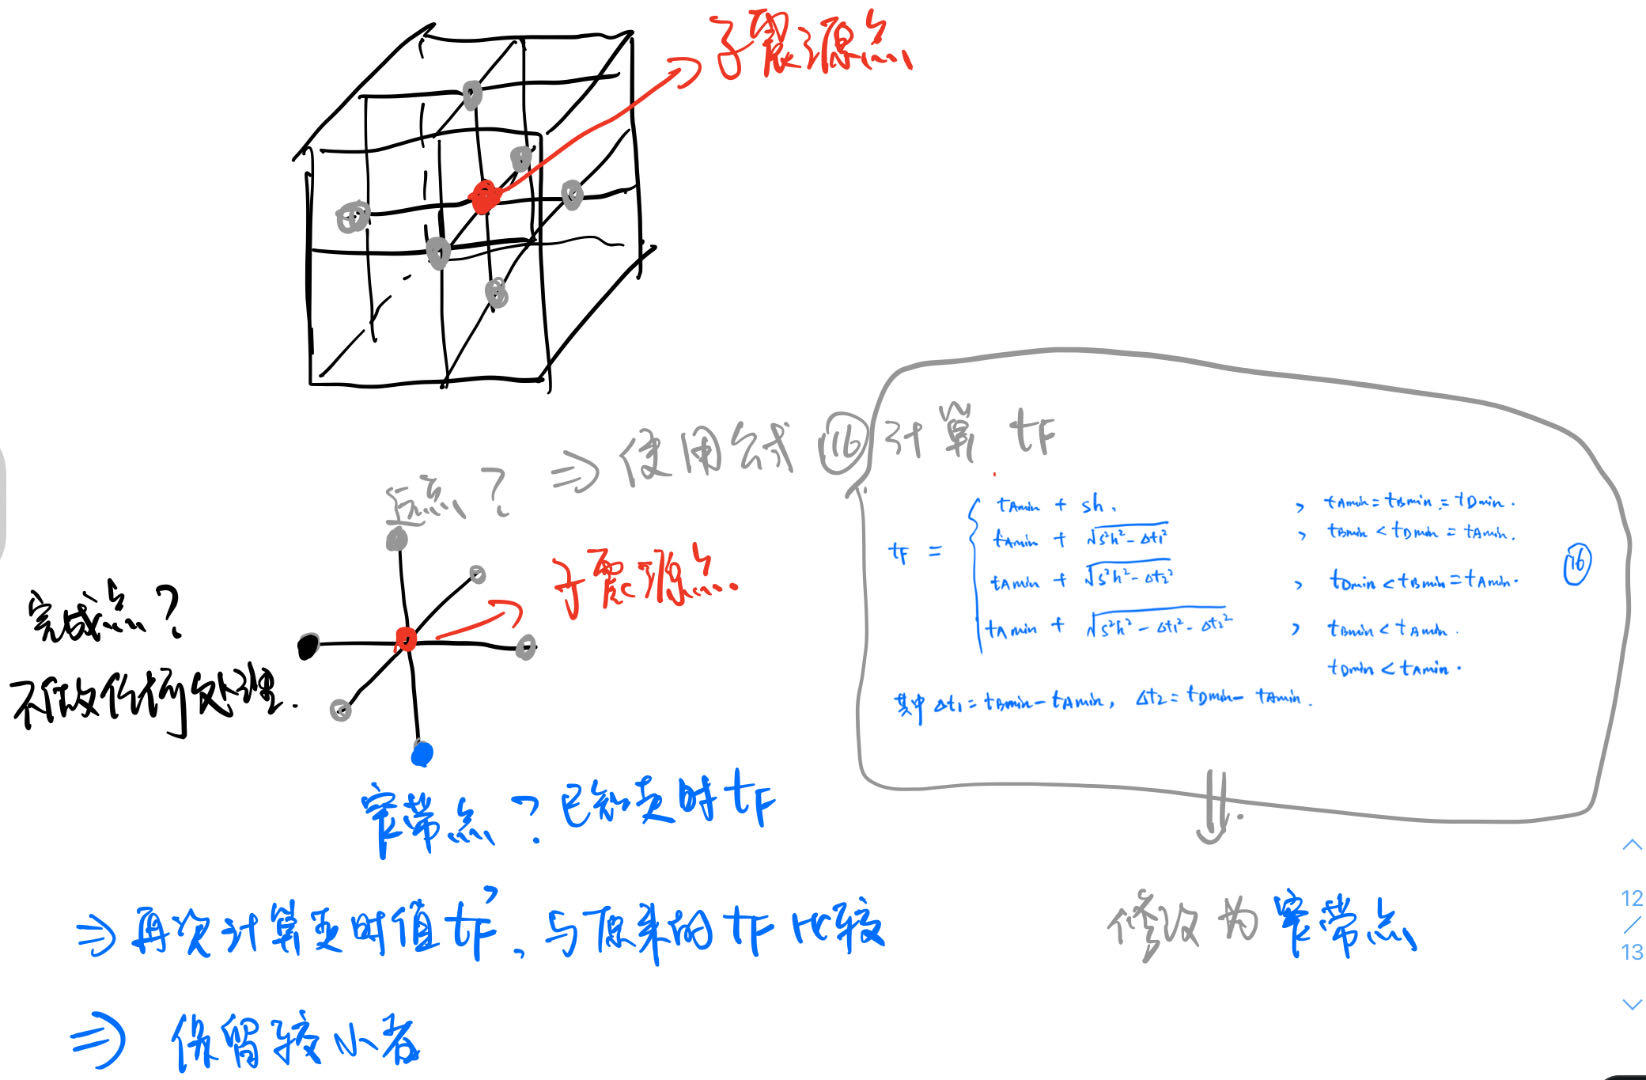 子震源点
远点？ ⇒ 使用公式 ⑯ 计算 tF
tF =
tAmin + sh. , tAmin = tBmin = tDmin.
tAmin + √s²h² - Δt₁² , tBmin < tDmin = tAmin.
tAmin + √s²h² - Δt₂² , tDmin < tBmin = tAmin.
tAmin + √s²h² - Δt₁² - Δt₂² , tBmin < tAmin.
tDmin < tAmin.
⑯
其中 Δt₁ = tBmin - tAmin, Δt₂ = tDmin - tAmin.
子震源点.
完成点？
不做任何处理.
窄带点？已知走时 tF
⇒ 再次计算走时值 tF', 与原来的 tF 比较
⇒ 保留较小者
⇓.
修改为 窄带点
12
/
13